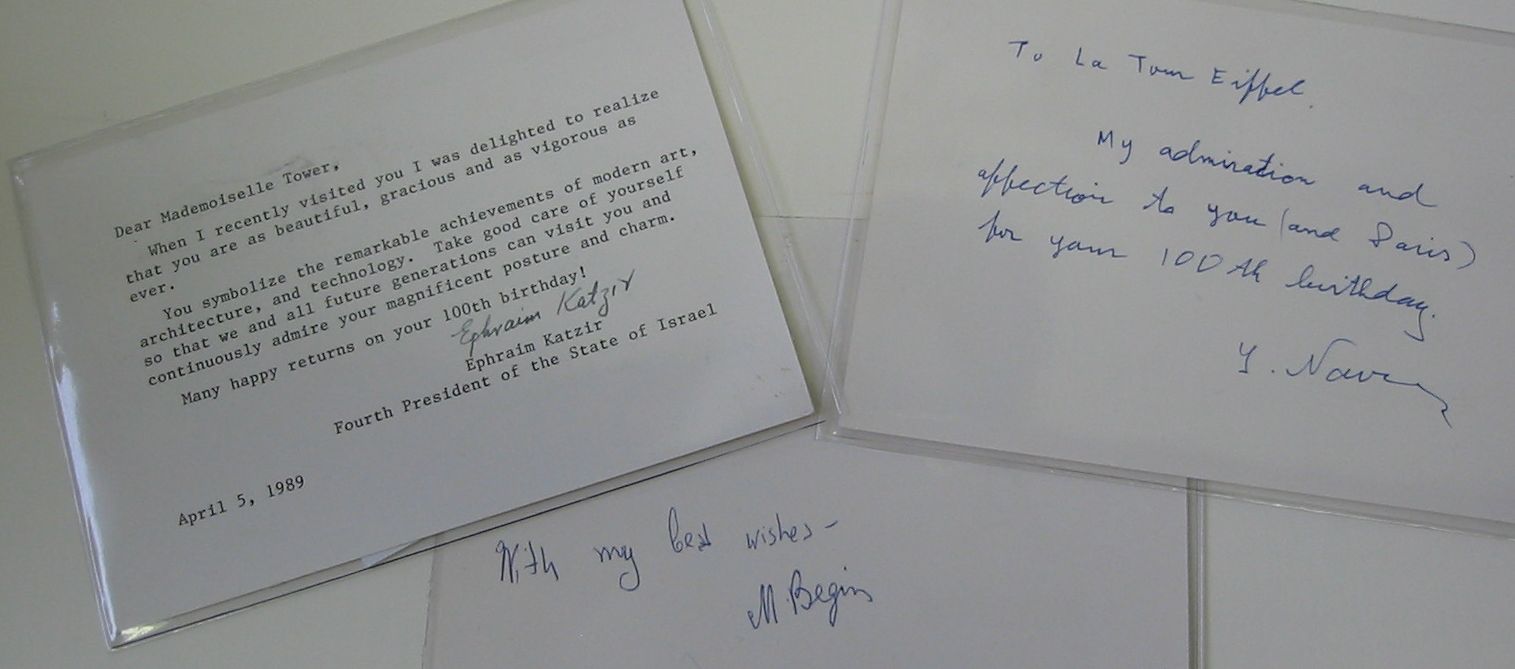 Dear Mademoiselle Tower,
When I recently visited you I was delighted to realize
that you are as beautiful, gracious and as vigorous as
ever.
You symbolize the remarkable achievements of modern art,
architecture, and technology. Take good care of yourself
so that we and all future generations can visit you and
continuously admire your magnificent posture and charm.
Many happy returns on your 100th birthday!
Ephraim Katzir
Ephraim Katzir
Fourth President of the State of Israel
April 5, 1989
To La Tour Eiffel.
My admiration and
affection to you (and Paris)
for your 100th birthday.
Y. Navon
With my best wishes-
M. Begin